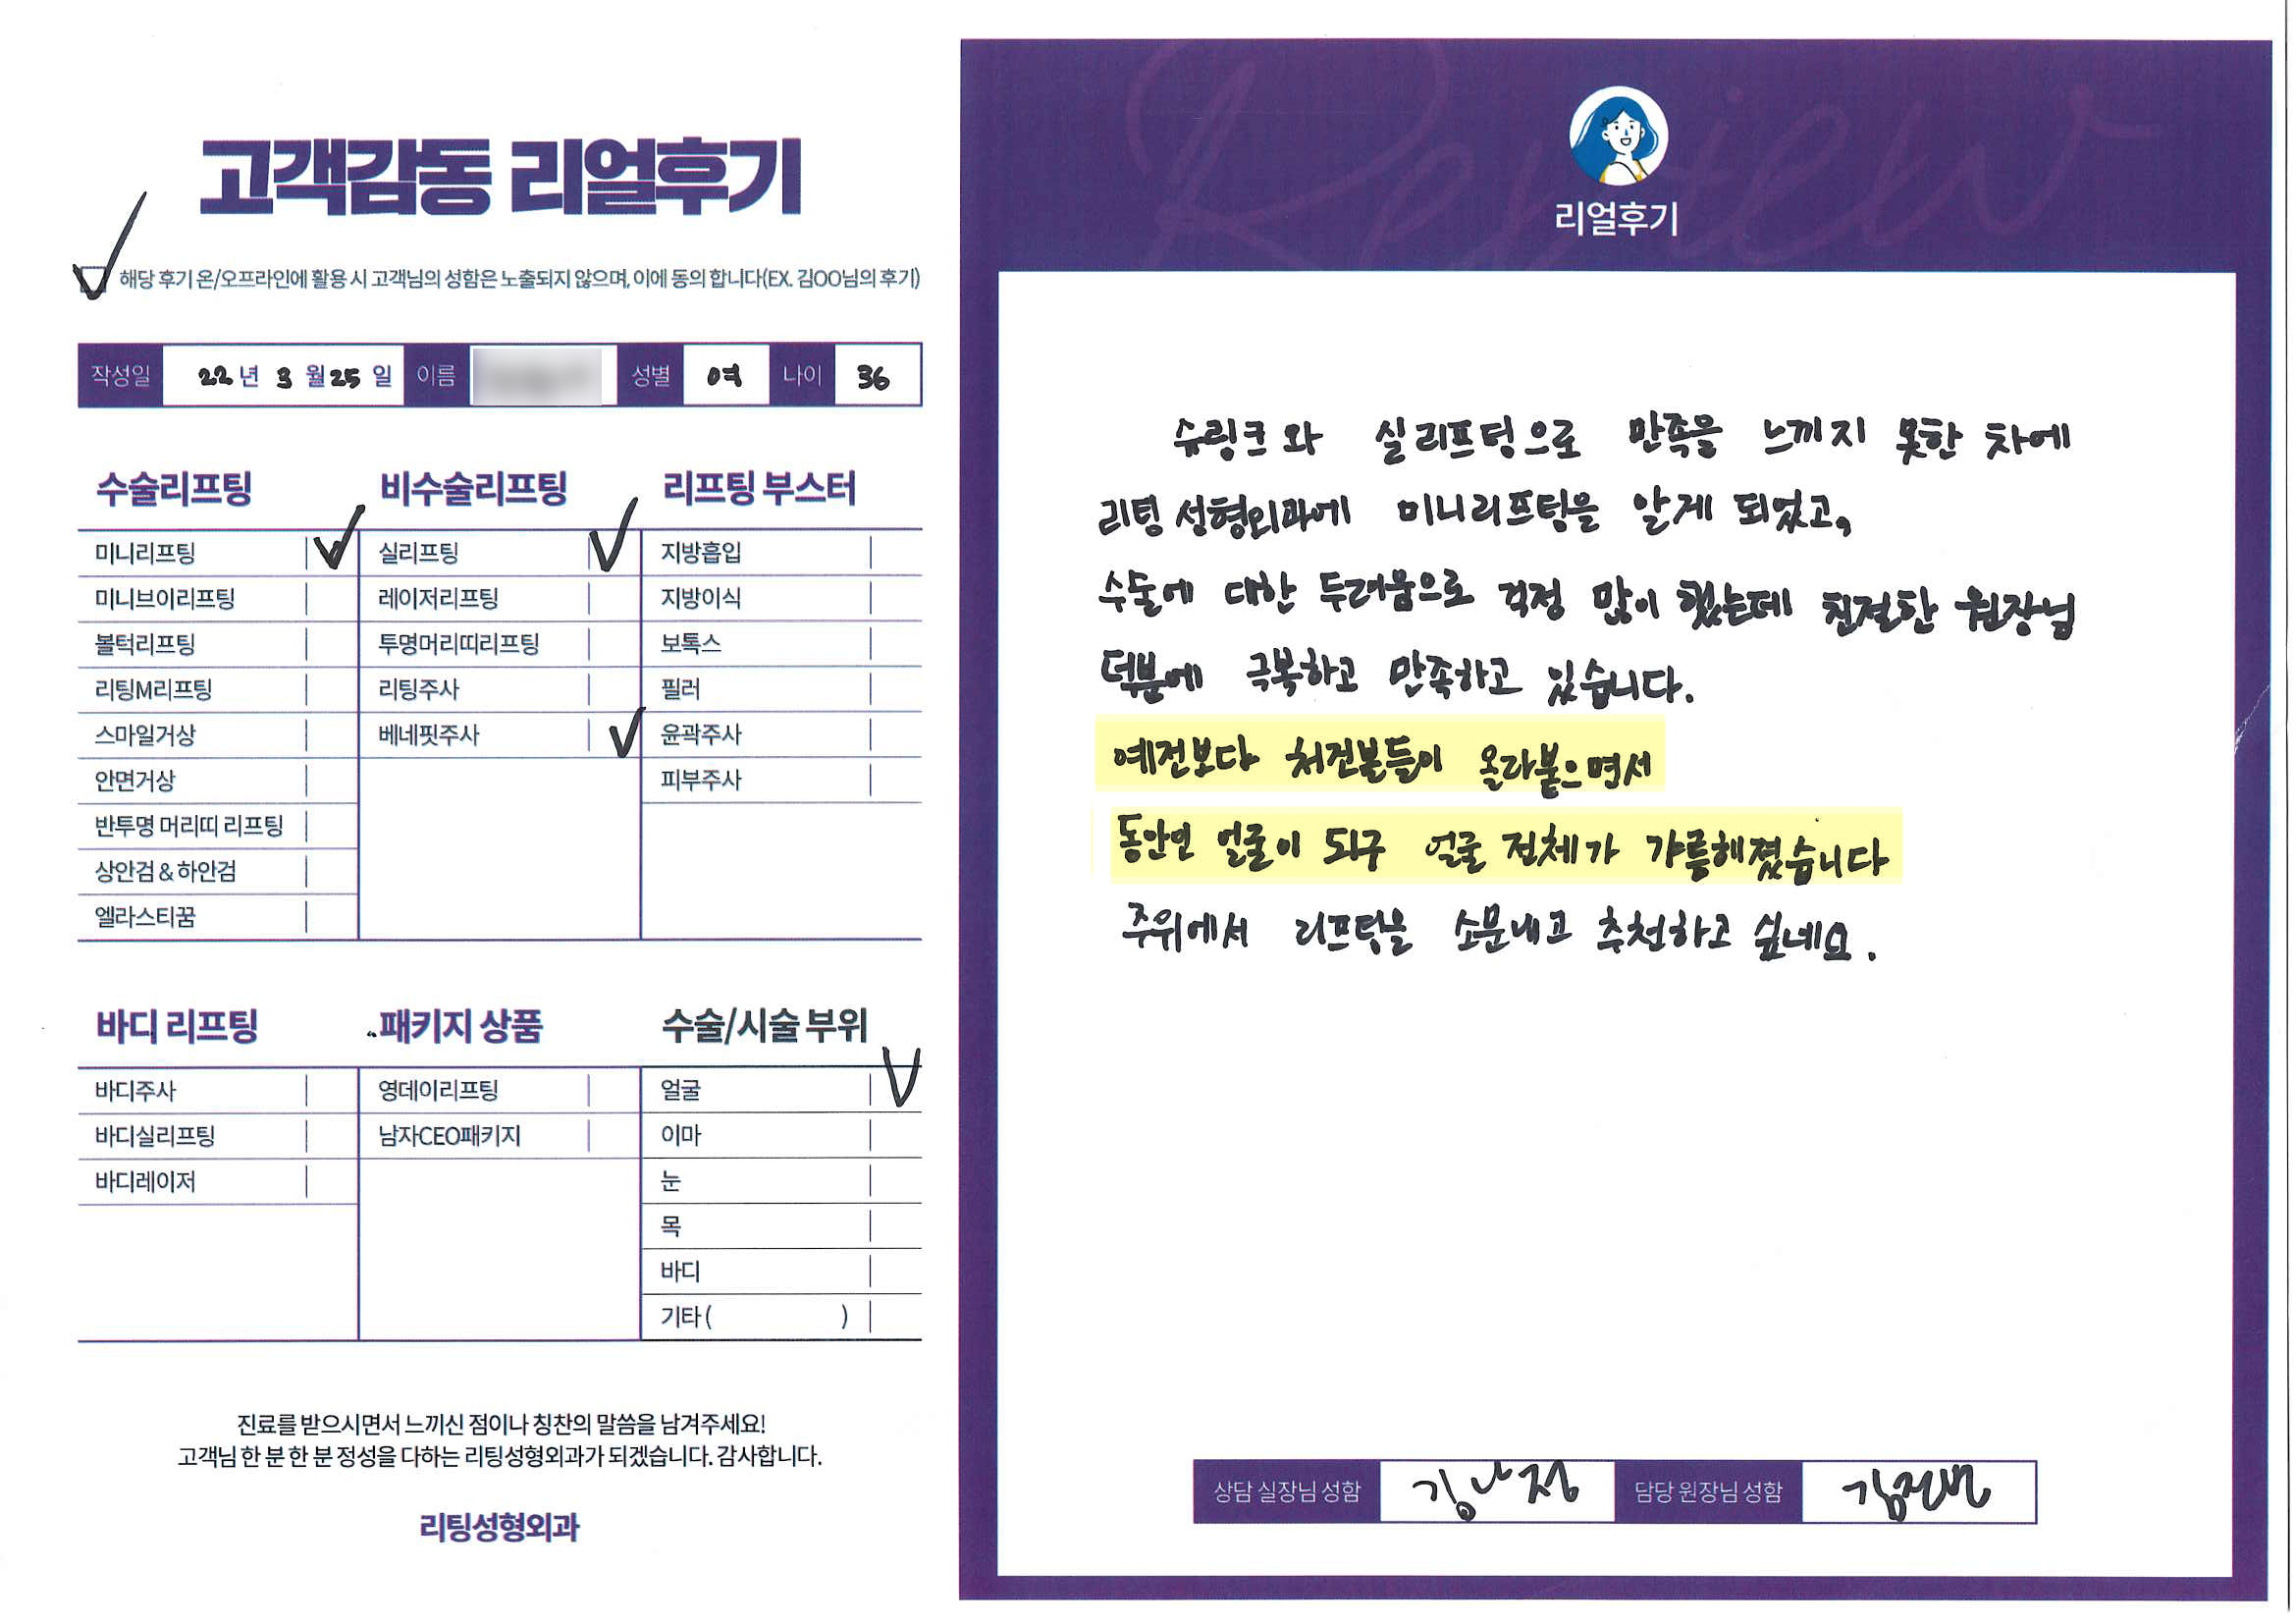 고객감동 리얼후기
해당 후기 온/오프라인에 활용 시 고객님의 성함은 노출되지 않으며, 이에 동의 합니다(EX. 김OO님의 후기)
작성일 22년 3월 25일 이름 성별 여 나이 36
수술리프팅
미니리프팅
미니브이리프팅
볼턱리프팅
리팅M리프팅
스마일거상
안면거상
반투명 머리띠 리프팅
상안검 & 하안검
엘라스티꿈
비수술리프팅
실리프팅
레이저리프팅
투명머리띠리프팅
리팅주사
베네핏주사
리프팅 부스터
지방흡입
지방이식
보톡스
필러
윤곽주사
피부주사
바디 리프팅
바디주사
바디실리프팅
바디레이저
패키지 상품
영데이리프팅
남자CEO패키지
수술/시술 부위
얼굴
이마
눈
목
바디
기타 ( )
진료를 받으시면서 느끼신 점이나 칭찬의 말씀을 남겨주세요!
고객님 한 분 한 분 정성을 다하는 리팅성형외과가 되겠습니다. 감사합니다.
리팅성형외과
Review
리얼후기
슈링크와 실리프팅으로 만족을 느끼지 못한 차에
리팅성형외과에 미니리프팅을 알게 되었고,
수술에 대한 두려움으로 걱정 많이 했는데 친절한 원장님
덕분에 극복하고 만족하고 있습니다.
예전보다 처진볼들이 올라붙으면서
동안인 얼굴이 되구 얼굴 전체가 갸름해졌습니다
주위에서 리프팅을 소문내고 추천하고 싶네요.
상담 실장님 성함 담당 원장님 성함